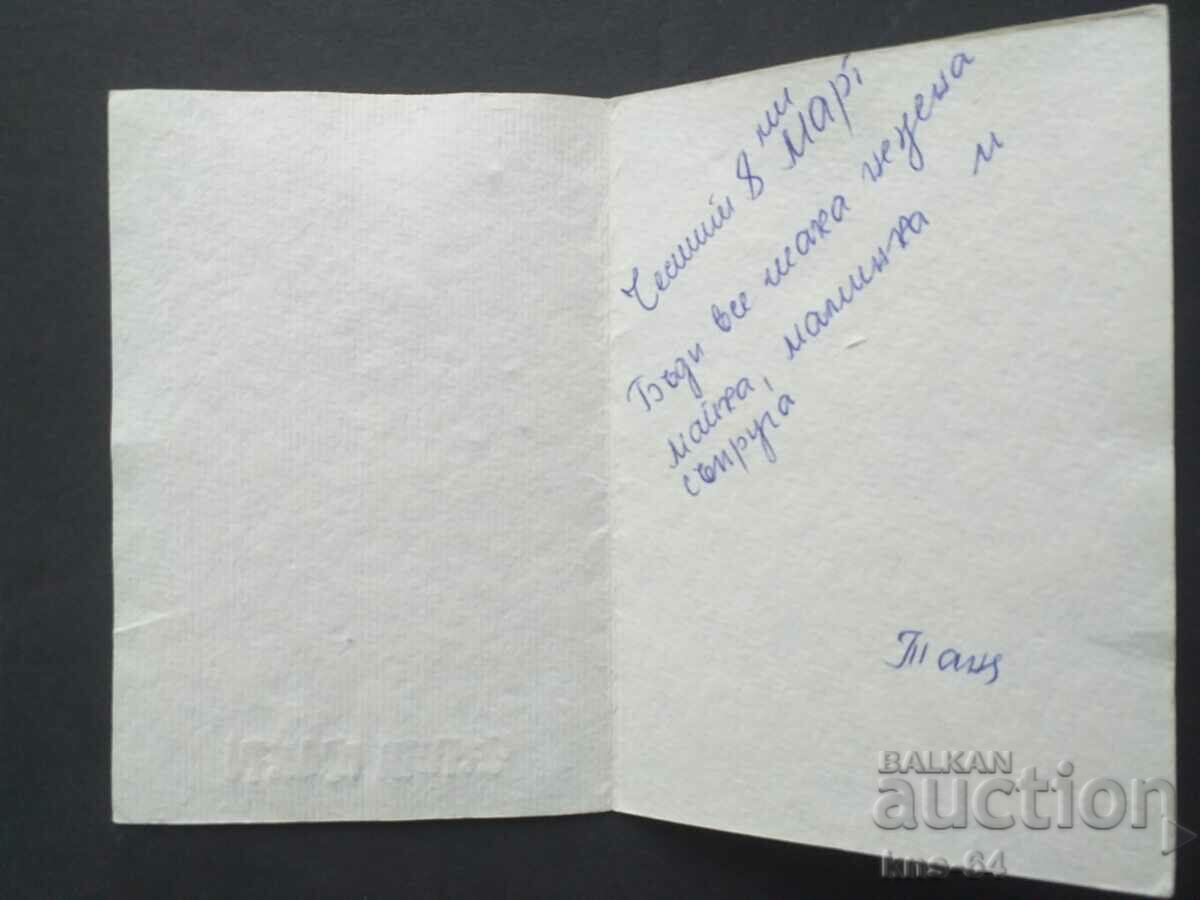 Честит 8ми Март
Бъди все така нежна
майка, маминка и
съпруга
Танц
BALKAN
auction
kns-64